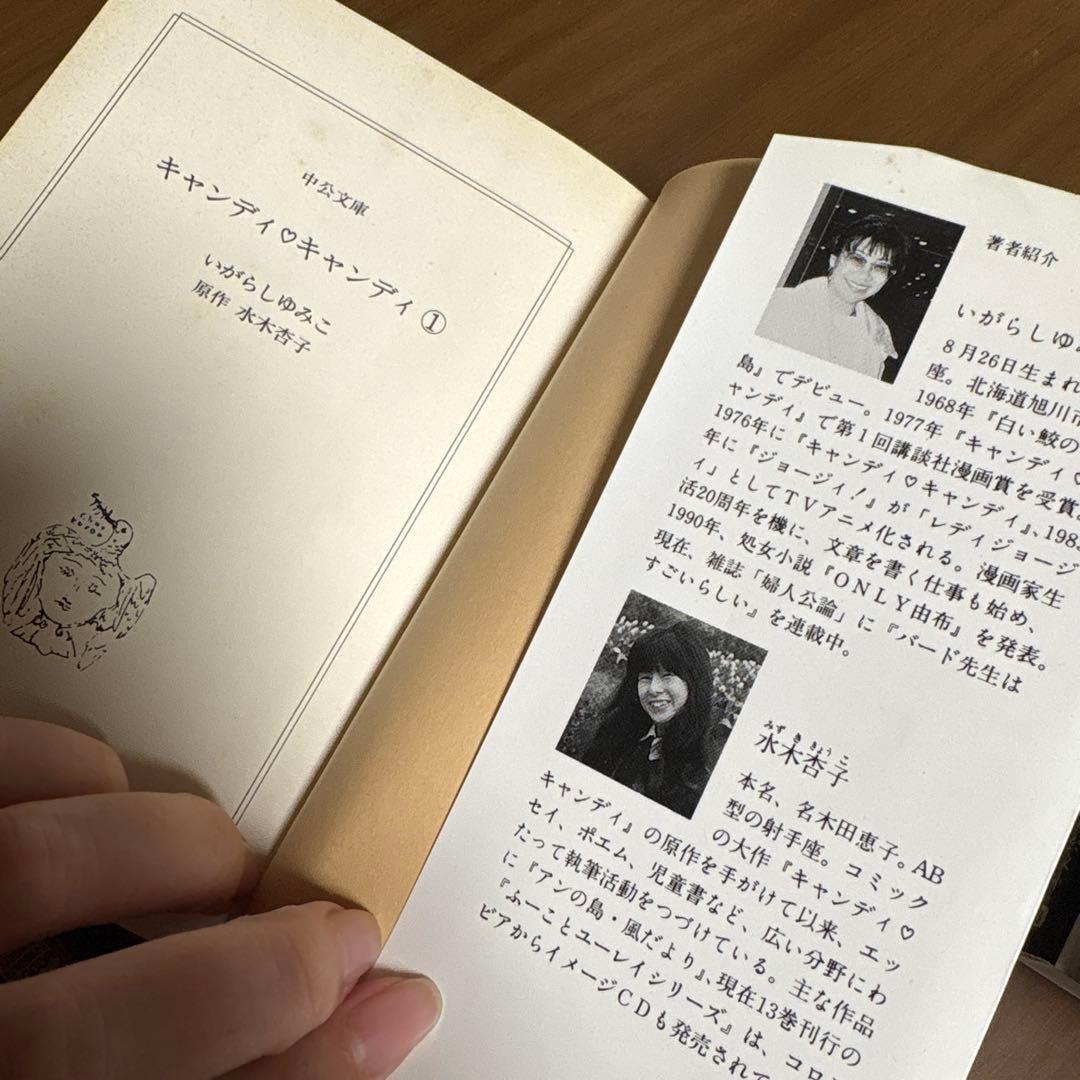 中公文庫
キャンディ♡キャンディ①
いがらしゆみこ
原作 水木杏子
著者紹介
いがらしゆみ
8月26日生まれ
座。北海道旭川市
1968年『白い鮫の
島』でデビュー。1977年『キャンディ♡
ャンディ』で第1回講談社漫画賞を受賞。
1976年に『キャンディ♡キャンディ』、198
年に『ジョージィ!』が「レディジョージ
ィ」としてTVアニメ化される。漫画家生
活20周年を機に、文章を書く仕事も始め、
1990年、処女小説『ONLY由布』を発表。
現在、雑誌「婦人公論」に『バード先生は
すごいらしい』を連載中。
みずききょうこ
水木杏子
本名、名木田恵子。AB
型の射手座。コミック
の大作『キャンディ♡
キャンディ』の原作を手がけて以来、エッ
セイ、ポエム、児童書など、広い分野にわ
たって執筆活動をつづけている。主な作品
に『アンの島・風だより』、現在13巻刊行の
『ふーことユーレイシリーズ』は、コロ
ビアからイメージCDも発売されて